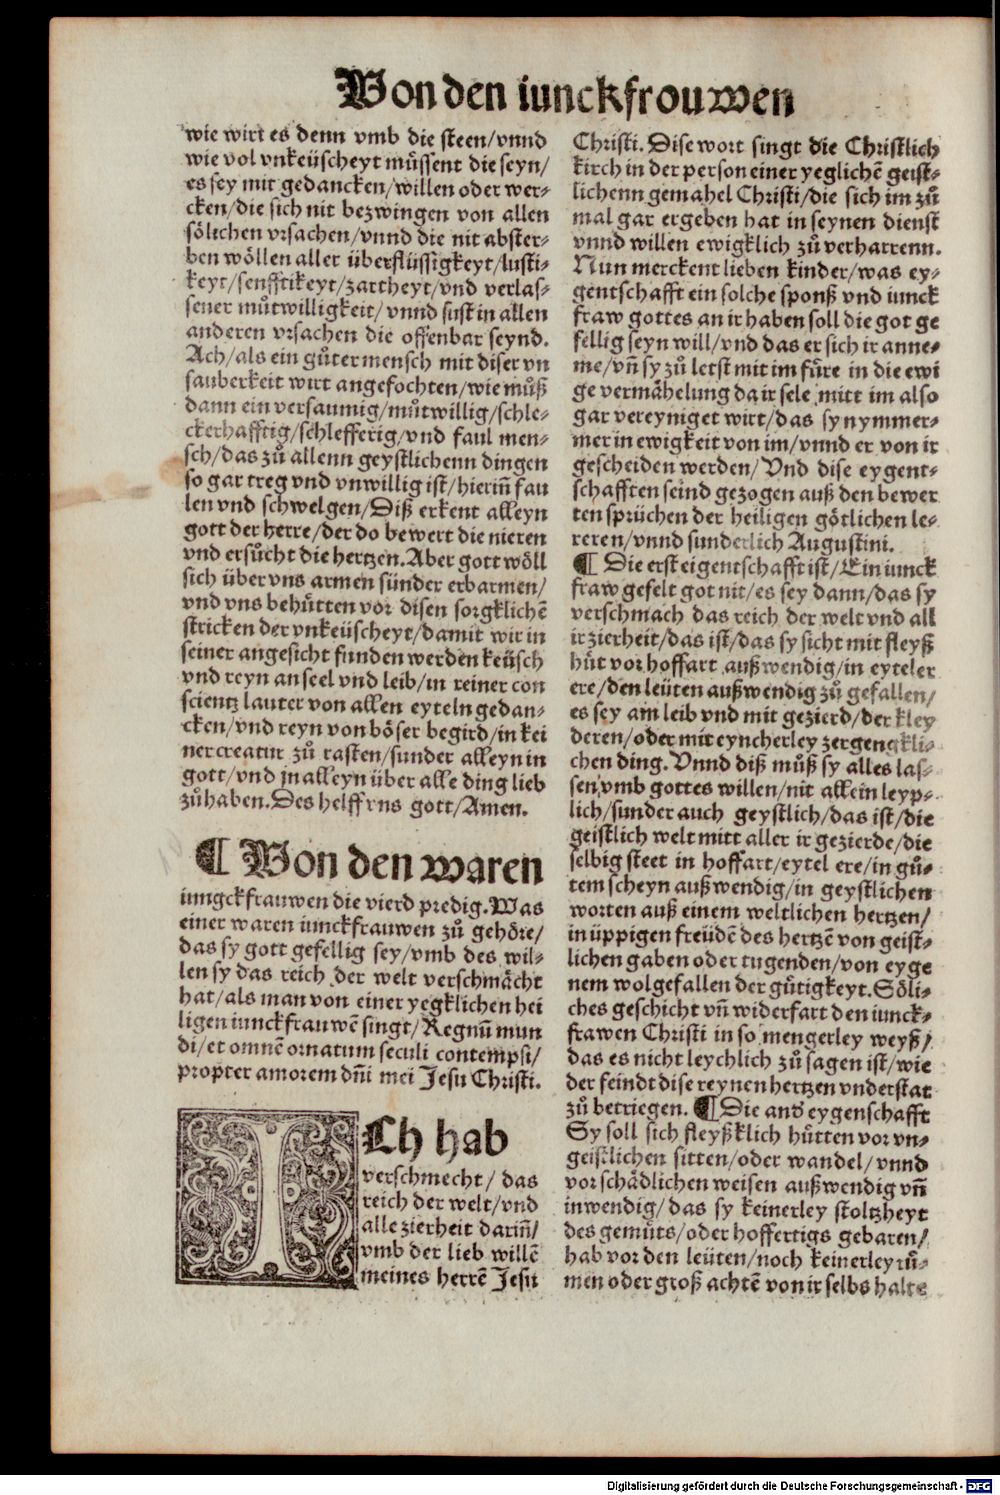 Von den iunckfrouwen
wie wirt es denn vmb die steen/vnnd
wie vol vnkeüscheyt müssent die seyn/
es sey mit gedancken/willen oder wer-
cken/die sich nit bezwingen von allen
sölichen vrsachen/vnnd die nit abster-
ben wöllen aller überflüssigkeyt/lusti-
keyt/senfftikeyt/zartheyt/vnd verlas-
sener můtwilligkeit/vnnd sust in allen
anderen vrsachen die offenbar seynd.
Ach/als ein gůter mensch mit diser vn
sauberkeit wirt angefochten/wie můß
dann ein versaumig/můtwillig/schle-
ckerhafftig/schlefferig/vnd faul men-
sch/das zů allenn geystlichenn dingen
so gar treg vnd vnwillig ist/hierin̄ fau
len vnd schwelgen/Diß erkent alleyn
gott der herre/der do bewert die nieren
vnd ersůcht die hertzen. Aber gott wöll
sich über vns armen sünder erbarmen/
vnd vns behütten vor disen sorgklichē
stricken der vnkeüscheyt/damit wir in
seiner angesicht funden werden keüsch
vnd reyn an seel vnd leib/in reiner con
scientz lauter von allen eyteln gedan-
cken/vnd reyn von böser begird/in kei
ner creatur zů rasten/sunder alleyn in
gott/vnd jn alleyn über alle ding lieb
zů haben. Des helff vns gott/Amen.
¶ Von den waren
iungckfrauwen die vierd predig. Was
einer waren iunckfrauwen zů gehöre/
das sy gott gefellig sey/vmb des wil-
len sy das reich der welt verschmächt
hat/als man von einer yegklichen hei
ligen iunckfrauwē singt/Regnū mun
di/et omnē ornatum seculi contempsi/
propter amorem dn̄i mei Jesu Christi.
ICh hab
verschmecht/ das
reich der welt/vnd
alle zierheit darin̄/
vmb der lieb willē
meines herrē Jesu
Christi. Dise wort singt die Christlich
kirch in der person einer yeglichē geist-
lichenn gemahel Christi/die sich im zů
mal gar ergeben hat in seynen dienst
vnnd willen ewigklich zů verharrenn.
Nun merckent lieben kinder/was ey-
gentschafft ein solche sponß vnd iunck
fraw gottes an ir haben soll die got ge
fellig seyn will/vnd das er sich ir anne-
me/vn̄ sy zů letst mit im füre in die ewi
ge vermähelung da ir sele mitt im also
gar vereyniget wirt/das sy nymmer-
mer in ewigkeit von im/vnnd er von ir
gescheiden werden/Vnd dise eygent-
schafften seind gezogen auß den bewer
ten sprüchen der heiligen götlichen le-
reren/vnnd sunderlich Augustini.
¶ Die erst eigentschafft ist/Ein iunck
fraw gefelt got nit/es sey dann/das sy
verschmach das reich der welt vnd all
ir zierheit/das ist/das sy sicht mit fleyß
hüt vor hoffart außwendig/in eyteler
ere/den leüten außwendig zů gefallen/
es sey am leib vnd mit gezierd/der kley
deren/oder mit eyncherley zergengkli-
chen ding. Vnnd diß můß sy alles las-
sen vmb gottes willen/nit allein leyp-
lich/sunder auch geystlich/das ist/die
geistlich welt mitt aller ir gezierde/die
selbig steet in hoffart/eytel ere/in gů-
tem scheyn außwendig/in geystlichen
worten auß einem weltlichen hertzen/
in üppigen freüdē des hertzē von geist-
lichen gaben oder tugenden/von eyge
nem wolgefallen der gütigkeyt. Söli-
ches geschicht vn̄ widerfart den iunck-
frawen Christi in so mengerley weyß/
das es nicht leychlich zů sagen ist/wie
der feindt dise reynen hertzen vnderstat
zů betriegen. ¶ Die and̕ eygenschafft
Sy soll sich fleyßklich hütten vor vn-
geistlichen sitten/oder wandel/vnnd
vor schädlichen weisen außwendig vn̄
inwendig/das sy keinerley stoltzheyt
des gemüts/oder hoffertigs gebaren/
hab vor den leüten/noch keinerley rů-
men oder groß achtē von ir selbs halte
Digitalisierung gefördert durch die Deutsche Forschungsgemeinschaft - DFG